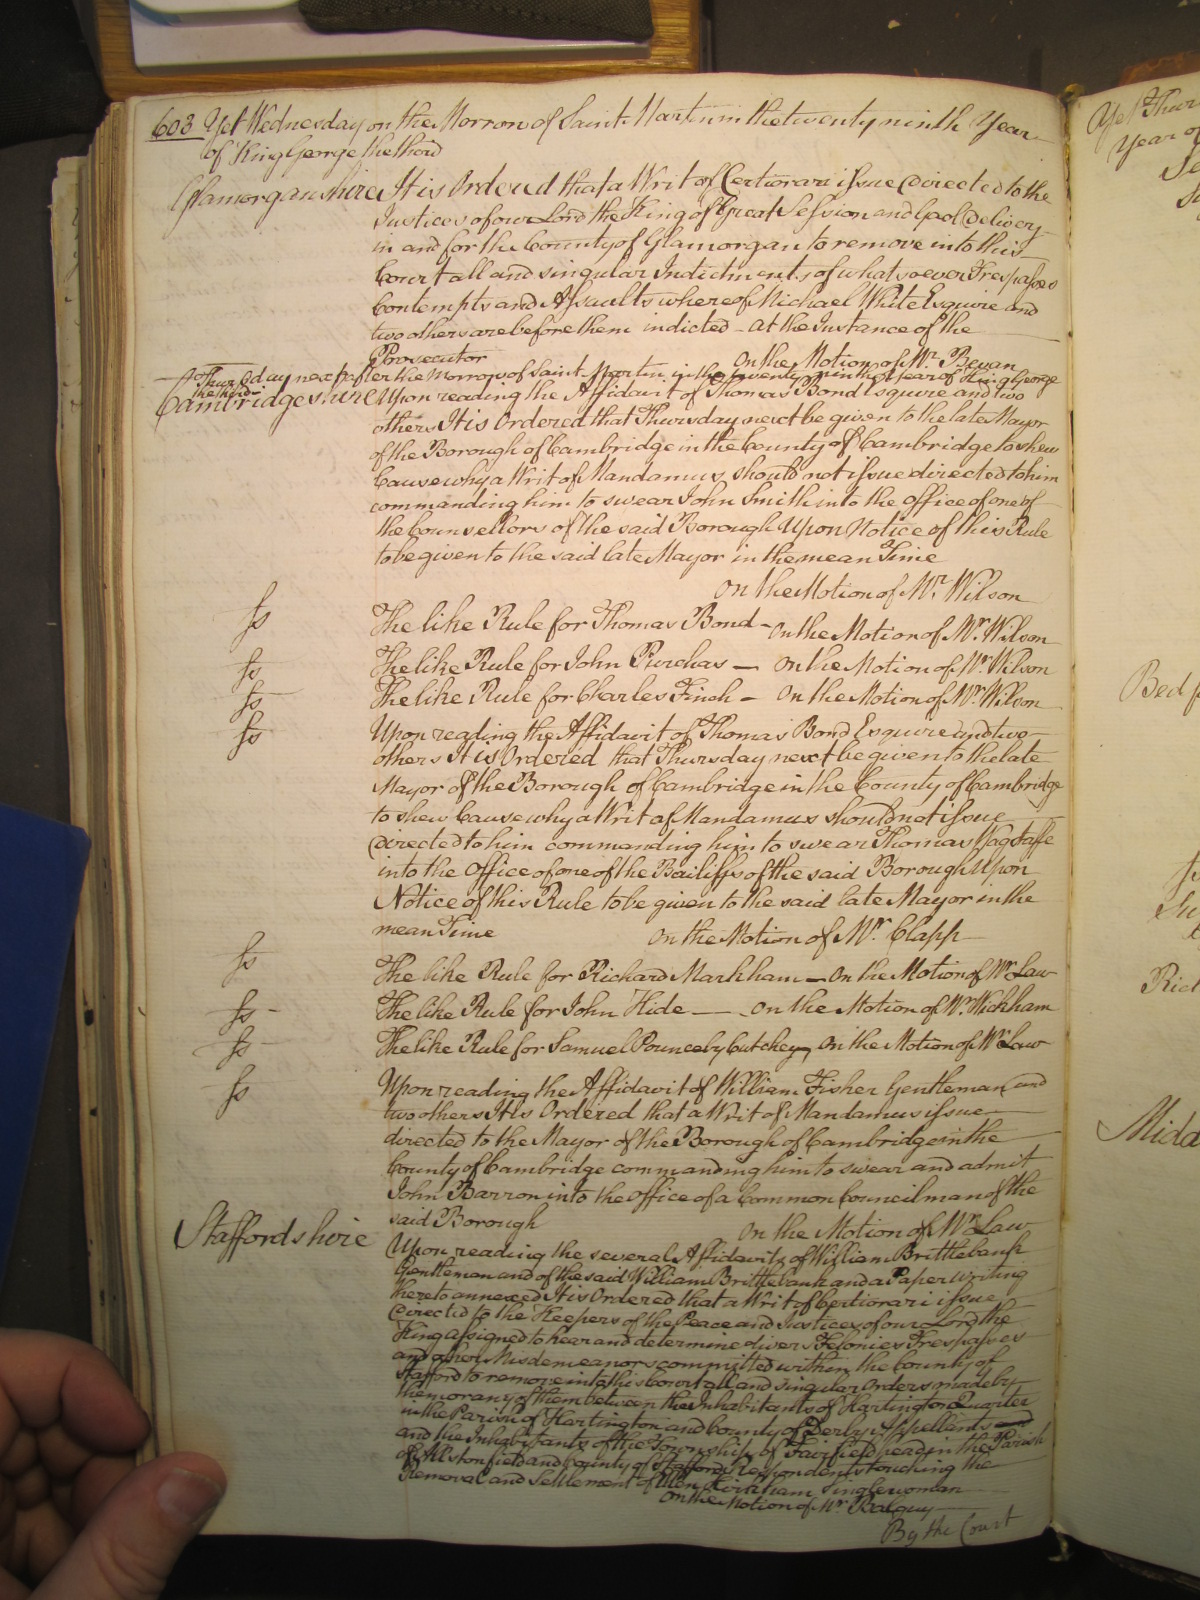 603 Yet Wednesday on the Morrow of Saint Martin in the twenty ninth Year
of King George the third
Glamorganshire It is Ordered that a Writ of Certiorari issue directed to the
Justices of our Lord the King of Great Session and Gaol Delivery
in and for the County of Glamorgan to remove into this
Court all and singular Indictments of whatsoever Trespasses
Contempts and Assaults whereof Michael White Esquire and
two others are before them indicted – at the Instance of the
Prosecutor On the Motion of Mr. Bevan
Thursday next after the Morrow of Saint Martin in the twenty ninth Year of King George
the third
Cambridgeshire Upon reading the Affidavit of Thomas Bond Esquire and two
others It is Ordered that Thursday next be given to the late Mayor
of the Borough of Cambridge in the County of Cambridge to shew
Cause why a Writ of Mandamus should not issue directed to him
commanding him to swear John Smith into the office of one of
the Counsellors of the said Borough Upon Notice of this Rule
to be given to the said late Mayor in the mean Time
On the Motion of Mr. Wilson
ss The like Rule for Thomas Bond – On the Motion of Mr. Wilson
ss The like Rule for John Purchas – On the Motion of Mr. Wilson
ss The like Rule for Charles Finch – On the Motion of Mr. Wilson
ss Upon reading the Affidavit of Thomas Bond Esquire and two
others It is Ordered that Thursday next be given to the late
Mayor of the Borough of Cambridge in the County of Cambridge
to shew Cause why a Writ of Mandamus should not issue
directed to him commanding him to swear Thomas Wagstaffe
into the Office of one of the Bailiffs of the said Borough Upon
Notice of this Rule to be given to the said late Mayor in the
mean Time On the Motion of Mr. Clapp
ss The like Rule for Richard Markham – On the Motion of Mr. Law
ss The like Rule for John Hide – On the Motion of Mr. Wickham
ss The like Rule for Samuel Pounceby On the Motion of Mr. Law
ss Upon reading the Affidavit of William Fisher Gentleman and
two others It is Ordered that a Writ of Mandamus issue
directed to the Mayor of the Borough of Cambridge in the
County of Cambridge commanding him to swear and admit
John Barron into the Office of a Common Councilman of the
said Borough On the Motion of Mr. Law
Staffordshire Upon reading the several Affidavits of William Brittlebank
Gentleman and of the said William Brittlebank and a Paper writing
thereto annexed It is Ordered that a Writ of Certiorari issue
Directed to the Keepers of the Peace and Justices of our Lord the
King assigned to hear and determine divers Felonies Trespasses
and other Misdemeanors committed within the County of
Stafford to remove into this Court all and singular Orders made by
them or any of them between the Inhabitants of Hartington Quarter
in the Parish of Hartington and County of Derby Appellants
and the Inhabitants of the Township of Fairfield head in the Parish
of Allstonfield and County of Stafford Respondents touching the
Removal and Settlement of Ellen Kirkham Singlewoman
On the Motion of Mr. Balguy
By the Court
Yet Thur
Year o
Bed f
Rich
Midd